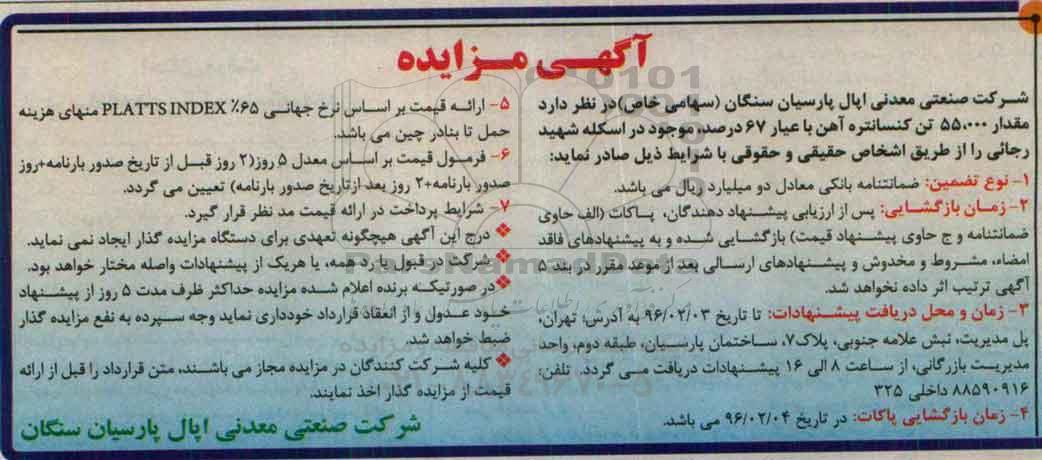 آگهـی مـزایده
شـرکت صنعتی معدنی اپال پارسیان سنگان (سهامی خاص) در نظر دارد
مقدار ۵۵،۰۰۰ تن کنسانتره آهن با عیار ۶۷ درصد، موجود در اسکله شهید
رجائی را از طریق اشخاص حقیقی و حقوقی با شرایط ذیل صادر نماید:
۱- نوع تضمین: ضمانتنامه بانکی معادل دو میلیارد ریال می باشد.
۲- زمـان بازگشـایی: پس از ارزیابی پیشـنهاد دهندگان، پـاکات (الف حاوی
ضمانتنامه و ج حاوی پیشـنهاد قیمت) بازگشـایی شـده و به پیشنهادهای فاقد
امضاء، مشـروط و مخدوش و پیشـنهادهای ارسـالی بعد از موعد مقرر در بند ۵
آگهی ترتیب اثر داده نخواهد شد.
۳- زمان و محل دریافت پیشـنهادات: تا تاریخ ۹۶/۰۲/۰۳ به آدرس: تهران،
پل مدیریت، نبش علامه جنوبی، پلاک۷، سـاختمان پارسـیان، طبقه دوم، واحد
مدیریـت بازرگانی، از سـاعت ۸ الی ۱۶ پیشـنهادات دریافت مـی گردد. تلفن:
۸۸۵۹۰۹۱۶ داخلی ۳۲۵
۴- زمان بازگشایی پاکات: در تاریخ ۹۶/۰۲/۰۴ می باشد.
۵- ارائـه قیمت بر اسـاس نرخ جهانـی ۶۵٪ PLATTS INDEX منهای هزینه
حمل تا بنادر چین می باشد.
۶- فرمـول قیمت بر اسـاس معدل ۵ روز(۲ روز قبـل از تاریخ صدور بارنامه+روز
صدور بارنامه+۲ روز بعد ازتاریخ صدور بارنامه) تعیین می گردد.
۷- شرایط پرداخت در ارائه قیمت مد نظر قرار گیرد.
❖ درج این آگهی هیچگونه تعهدی برای دستگاه مزایده گذار ایجاد نمی نماید.
❖ شرکت در قبول یا رد همه، یا هریک از پیشنهادات واصله مختار خواهد بود.
❖ در صورتیکـه برنده اعلام شـده مزایده حداکثر ظرف مدت ۵ روز از پیشـنهاد
خـود عـدول و از انعقاد قرارداد خودداری نماید وجه سـپرده به نفع مزایده گذار
ضبط خواهد شد.
❖ کلیه شـرکت کنندگان در مزایده مجاز می باشـند، متن قرارداد را قبل از ارائه
قیمت از مزایده گذار اخذ نمایند.
شرکت صنعتی معدنی اپال پارسیان سنگان
ParsNamadData